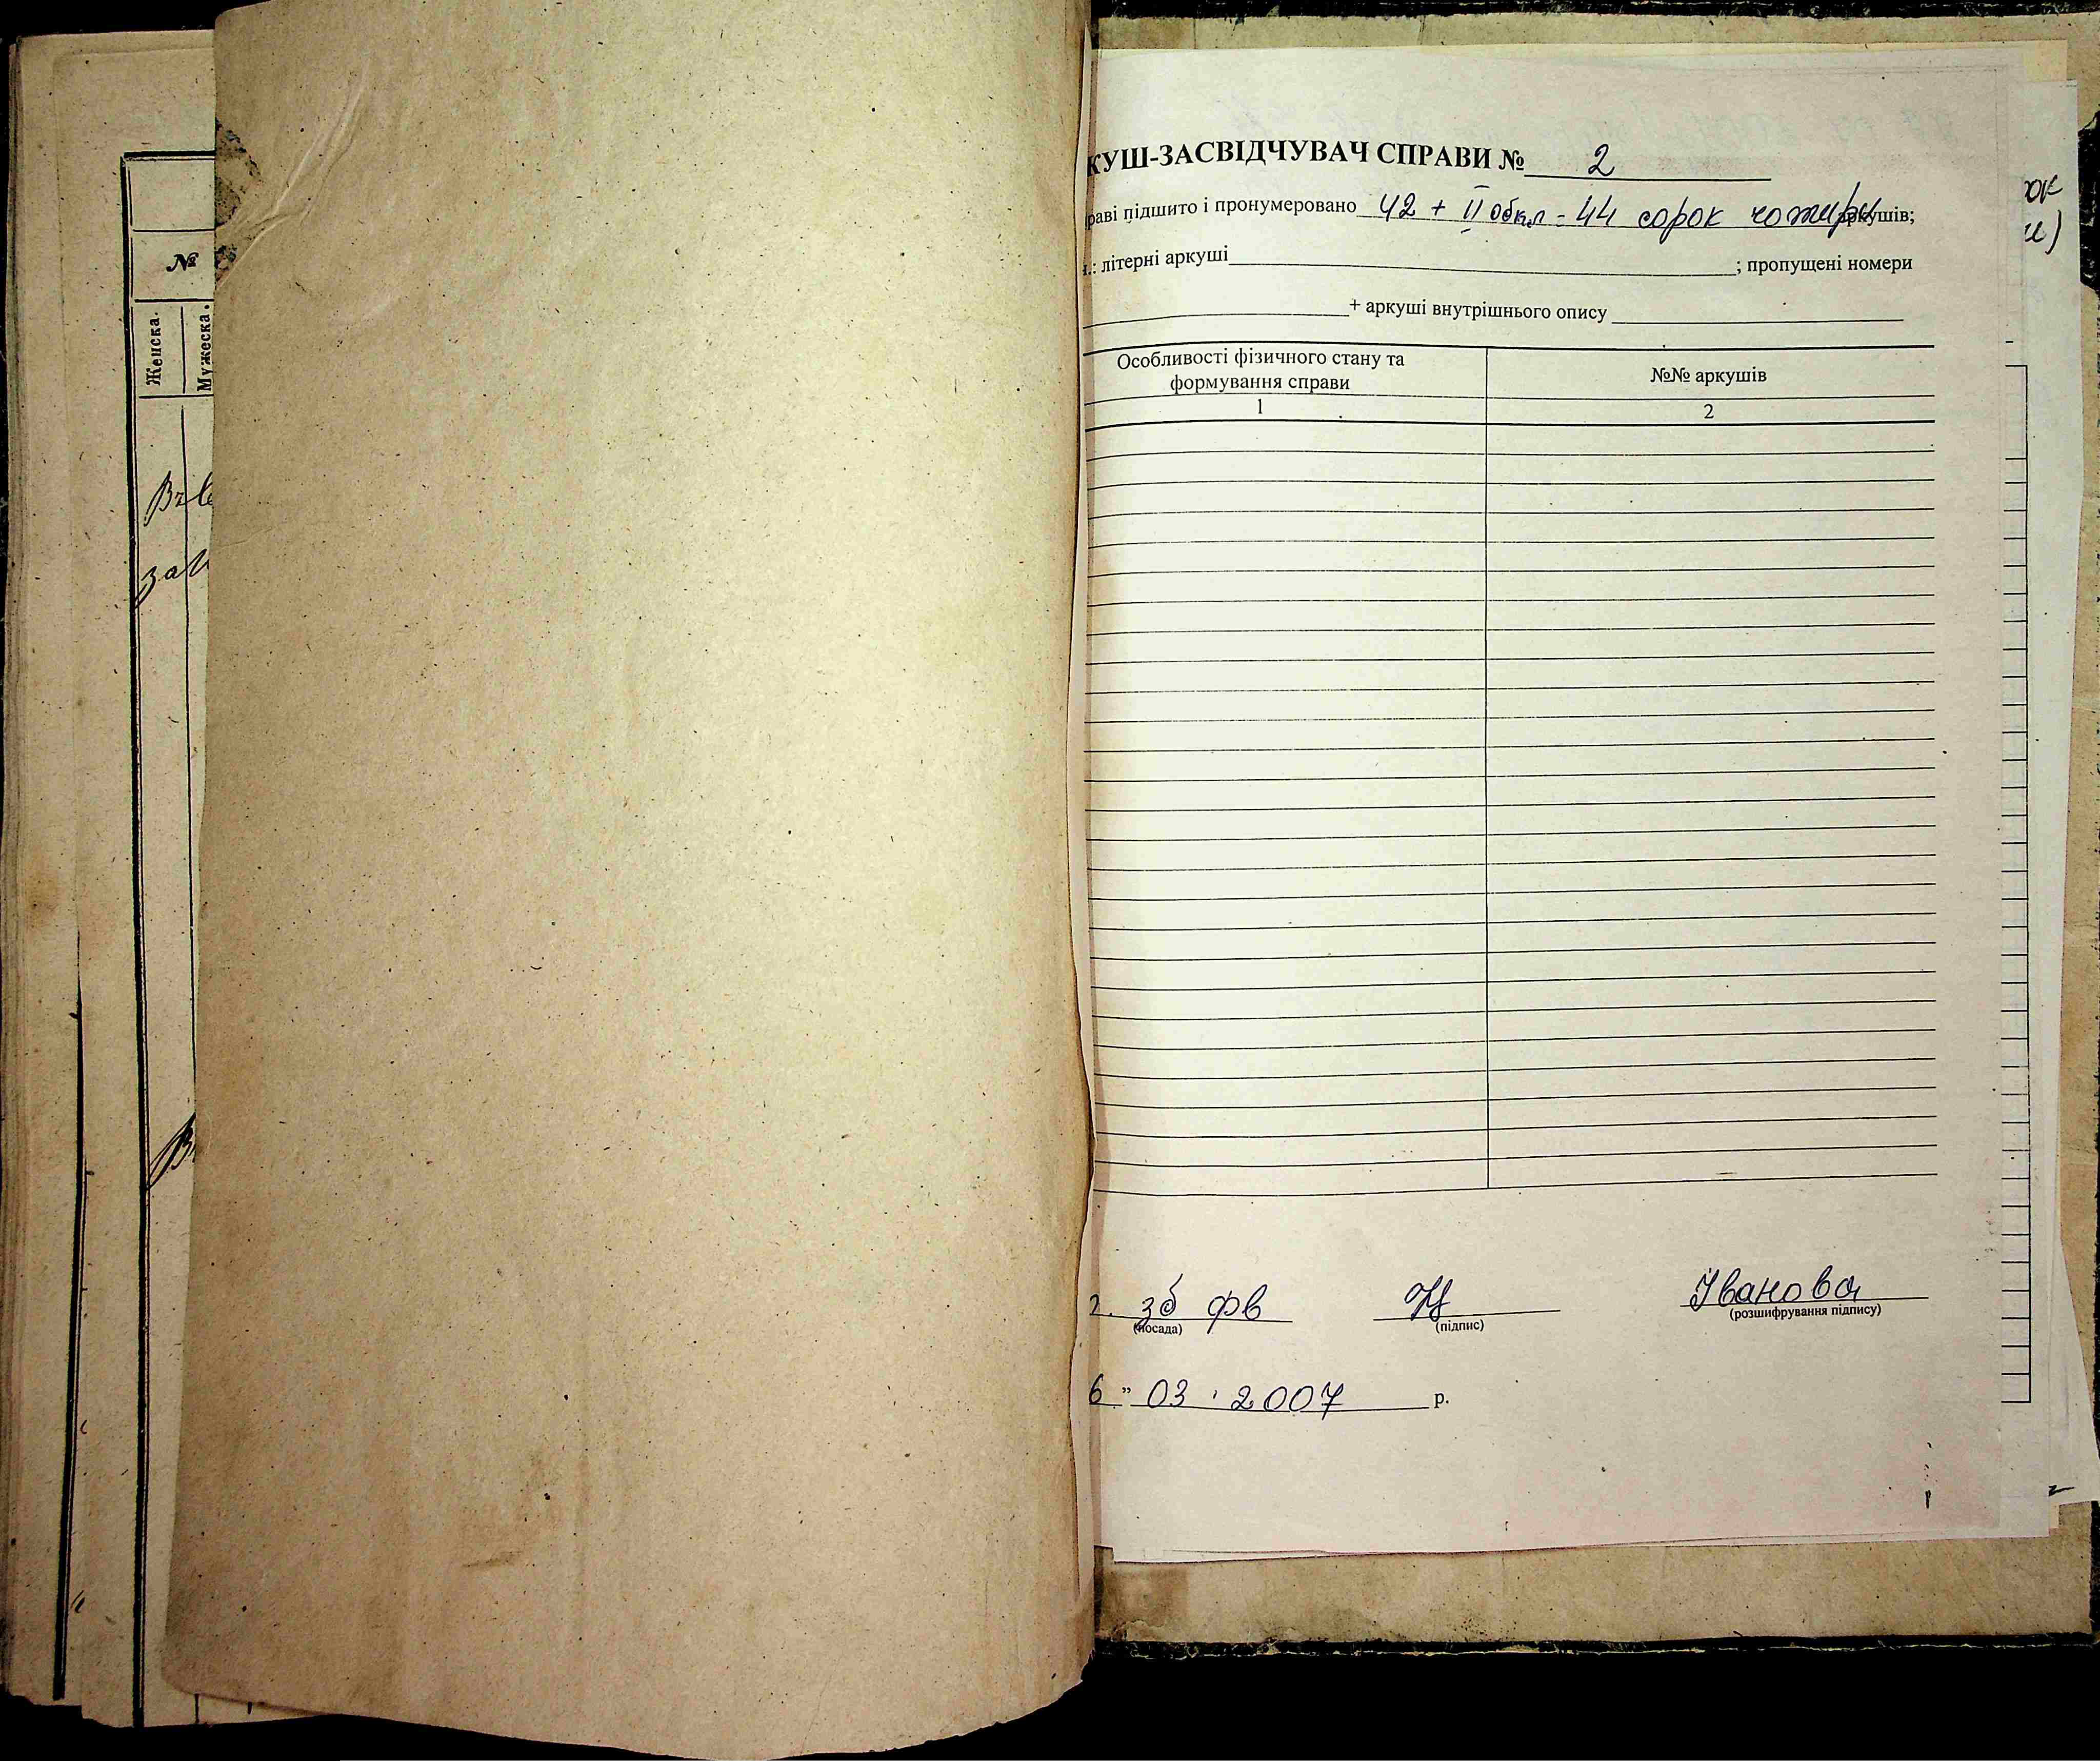 №
Женска.
Мужеска.
КУШ-ЗАСВІДЧУВАЧ СПРАВИ № 2
раві підшито і пронумеровано 42 + II обкл = 44 сорок чотири аркушів;
.: літерні аркуші ; пропущені номери
+ аркуші внутрішнього опису
Особливості фізичного стану та формування справи
№№ аркушів
1
2
зб фв
Іванова
(посада)
(підпис)
(розшифрування підпису)
6 " 03 . 2007 р.